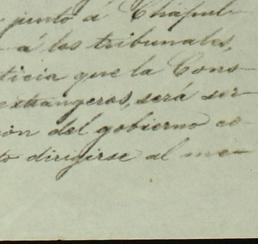 junto á Chapul-
á los tribunales,
ticia que la Cons-
extrangeros, será ser-
ión del gobierno ce-
to dirigirse al me-